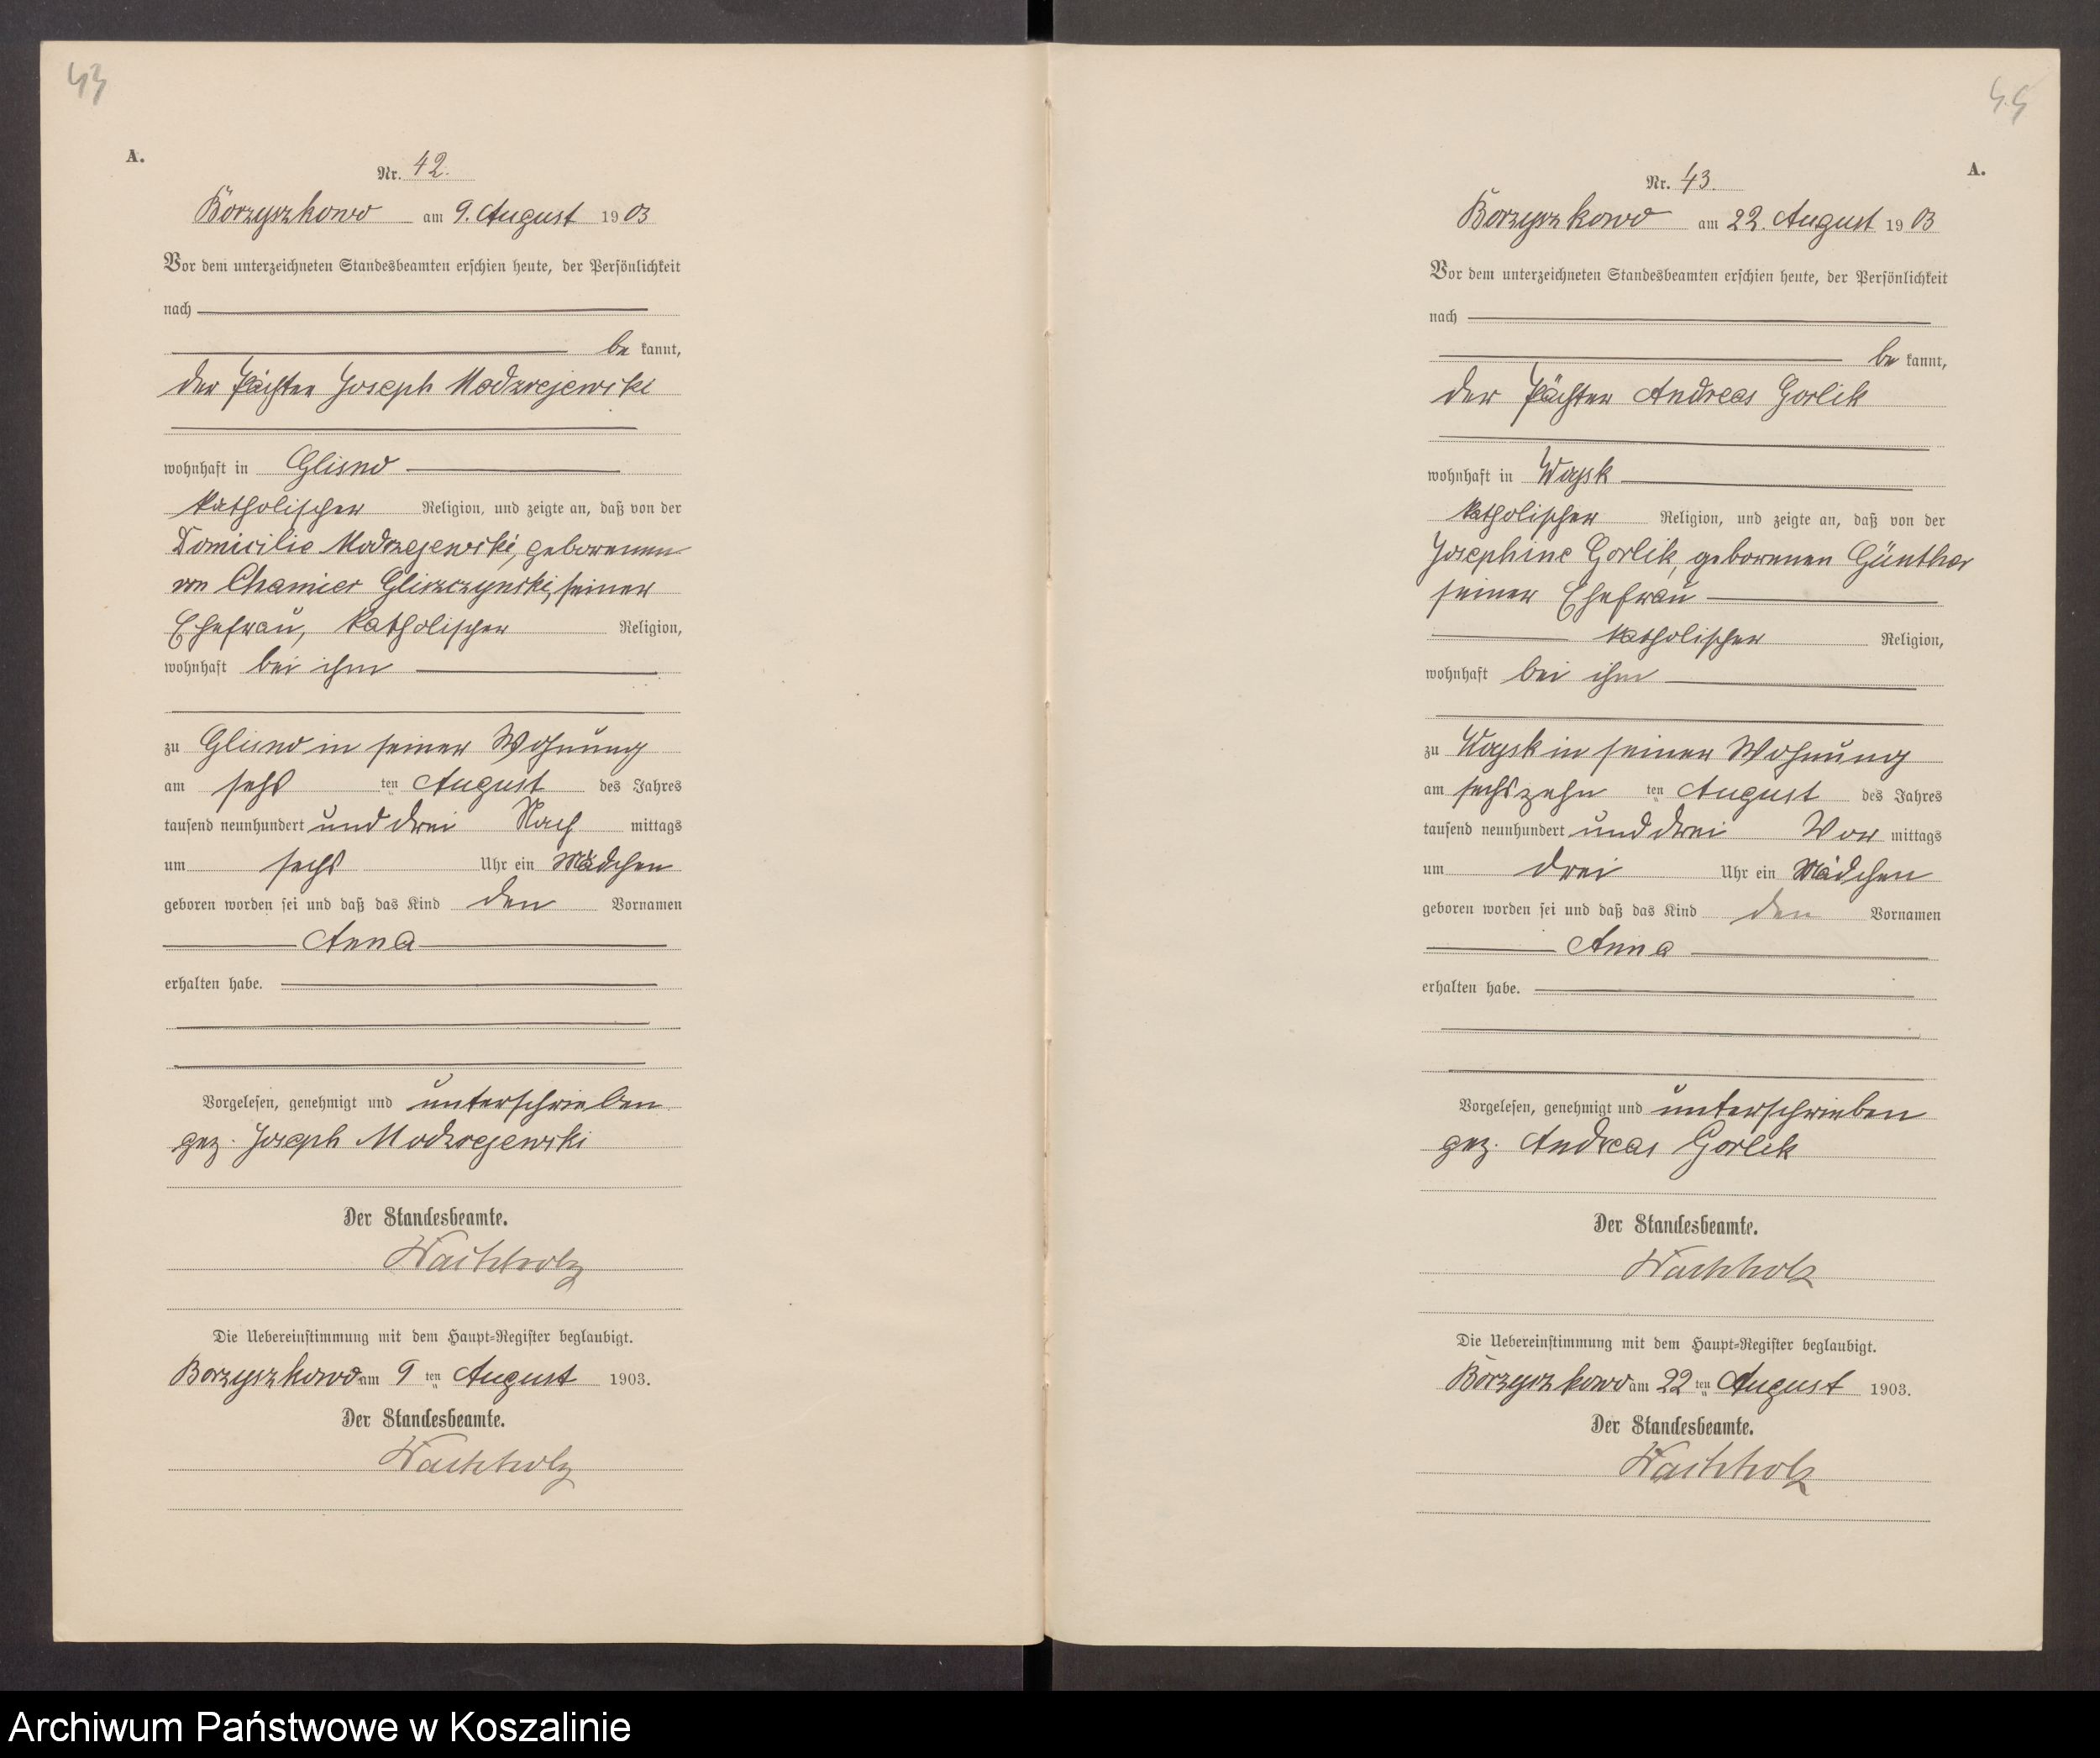 43
A.
Nr. 42.
Borzyszkowo am 9. August 1903
Vor dem unterzeichneten Standesbeamten erschien heute, der Persönlichkeit
nach
be kannt,
der Pächter Joseph Modrzejewski
wohnhaft in Glisno
katholischer Religion, und zeigte an, daß von der
Domicilie Modrzejewski, geborenen
von Chamier Gliszczynski, seiner
Ehefrau, katholischer Religion,
wohnhaft bei ihm
zu Glisno in seiner Wohnung
am sechs ten August des Jahres
tausend neunhundert und drei Nach mittags
um sechs Uhr ein Mädchen
geboren worden sei und daß das Kind den Vornamen
Anna
erhalten habe.
Vorgelesen, genehmigt und unterschrieben
gez. Joseph Modrzejewski
Der Standesbeamte.
Wachholz
Die Uebereinstimmung mit dem Haupt-Register beglaubigt.
Borzyszkowo am 9 ten August 1903.
Der Standesbeamte.
Wachholz
44
A.
Nr. 43.
Borzyszkowo am 22. August 1903
Vor dem unterzeichneten Standesbeamten erschien heute, der Persönlichkeit
nach
be kannt,
der Pächter Andreas Gorlik
wohnhaft in Wojsk
katholischer Religion, und zeigte an, daß von der
Josephine Gorlik, geborenen Günther
seiner Ehefrau
katholischer Religion,
wohnhaft bei ihm
zu Wojsk in seiner Wohnung
am sechszehn ten August des Jahres
tausend neunhundert und drei Vor mittags
um drei Uhr ein Mädchen
geboren worden sei und daß das Kind den Vornamen
Anna
erhalten habe.
Vorgelesen, genehmigt und unterschrieben
gez. Andreas Gorlik
Der Standesbeamte.
Wachholz
Die Uebereinstimmung mit dem Haupt-Register beglaubigt.
Borzyszkowo am 22 ten August 1903.
Der Standesbeamte.
Wachholz
Archiwum Państwowe w Koszalinie